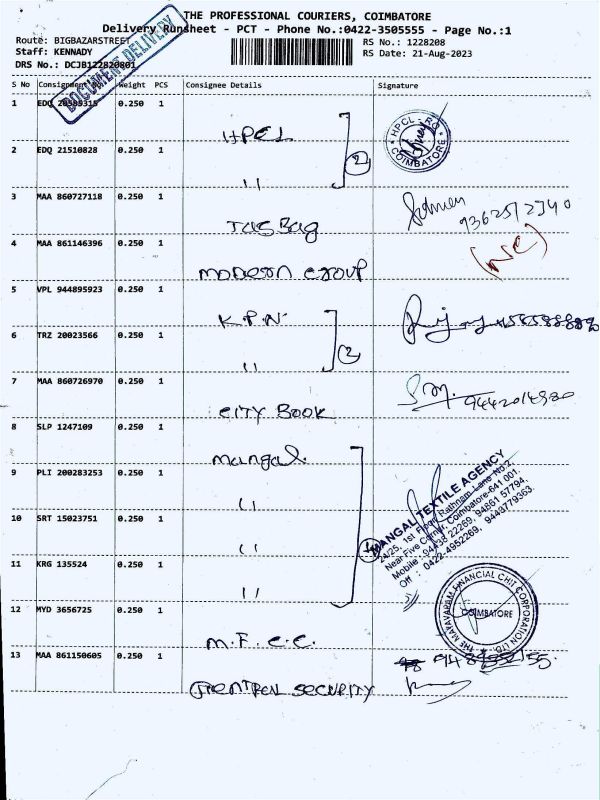 THE PROFESSIONAL COURIERS, COIMBATORE
Delivery Runsheet - PCT - Phone No.:0422-3505555 - Page No.:1
Route: BIGBAZARSTREET
RS No.: 1228208
Staff: KENNADY
RS Date: 21-Aug-2023
DRS No.: DCJB122820801
DOCUMENT DELIVERY
S No Consignment Weight PCS Consignee Details Signature
1 EDQ 20585315 0.250 1
HPCL
HPCL - RO
COIMBATORE
2
2 EDQ 21510828 0.250 1
11
3 MAA 860727118 0.250 1
TasBag
9362512340
4 MAA 861146396 0.250 1
(NC)
modern group
5 VPL 944895923 0.250 1
K.P.N.
6 TRZ 20023566 0.250 1
11
2
7 MAA 860726970 0.250 1
9442014980
city Book
8 SLP 1247109 0.250 1
mangal.
9 PLI 200283253 0.250 1
11
10 SRT 15023751 0.250 1
11
MANGAL TEXTILE AGENCY
24/25, 1st Floor, Rathnam Lane No.2,
Near Five Corner, Coimbatore-641 001.
Mobile : 94438 22269, 94861 57794,
Off : 0422-4952269, 9443779363.
11 KRG 135524 0.250 1
11
12 MYD 3656725 0.250 1
M.F.C.C.
THE MARAVARAM FINANCIAL CHIT CORPORATION LTD.
COIMBATORE
13 MAA 861150605 0.250 1
security